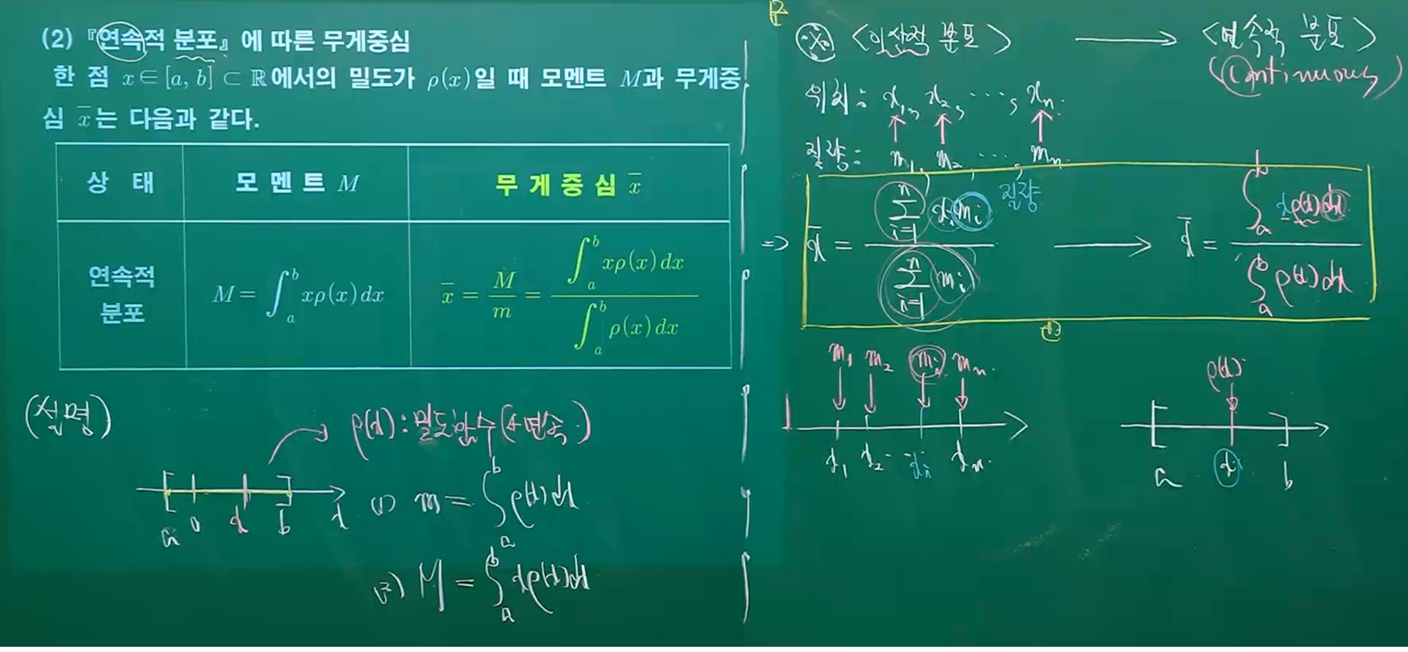 (2) 『연속적 분포』에 따른 무게중심
한 점 x∈[a, b]⊂ℝ에서의 밀도가 ρ(x)일 때 모멘트 M과 무게중
심 x̄는 다음과 같다.
상 태 모 멘 트 M 무 게 중 심 x̄
연속적 분포 M=∫_a^b xρ(x)dx x̄=M/m=∫_a^b xρ(x)dx / ∫_a^b ρ(x)dx
(설명)
ρ(x) : 밀도함수(연속)
a 0 x b x
(1) m = ∫_a^b ρ(x)dx
(2) M = ∫_a^b xρ(x)dx
<이산적 분포> → <연속적 분포>
(Continuous)
위치: x₁, x₂, ⋯, xₙ.
질량: m₁, m₂, ⋯, mₙ
질량
⇒ x̄ = Σ_{i=1}^n xᵢmᵢ / Σ_{i=1}^n mᵢ → x̄ = ∫_a^b xρ(x)dx / ∫_a^b ρ(x)dx
m₁ m₂ mᵢ mₙ
x₁ x₂ ⋯ xᵢ xₙ
ρ(x)
a x b